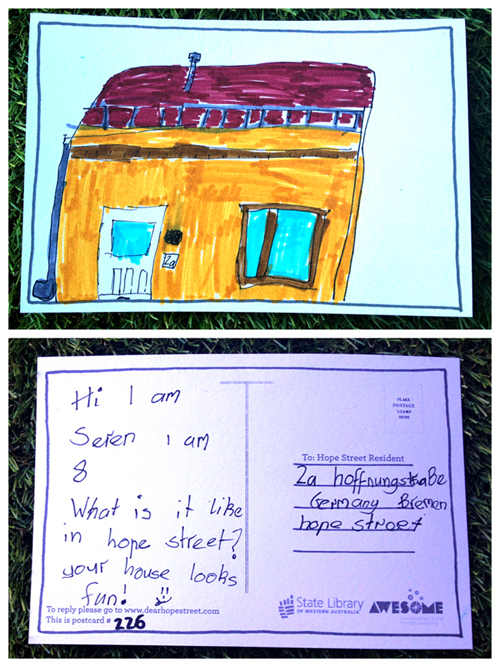 2a
Hi I am
Seren I am
8
What is it like
in hope street?
your house looks
fun!
To reply please go to www.dearhopestreet.com
This is postcard # 226
PLACE
POSTAGE
STAMP
HERE
To: Hope Street Resident
2a hoffnungstraBe
Germany Bremen
hope street
State Library
OF WESTERN AUSTRALIA
AWESOME